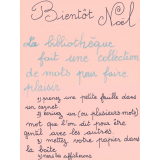 Bientôt Noël
La bibliothèque
fait une collection
de mots pour faire
plaisir
1) prenez une petite feuille dans
un carnet
2) écrivez un (ou plusieurs mots)
mot que l'on dit pour être
gentil avec les autres
3) mettez votre papier dans
la boîte
4) nous les afficherons